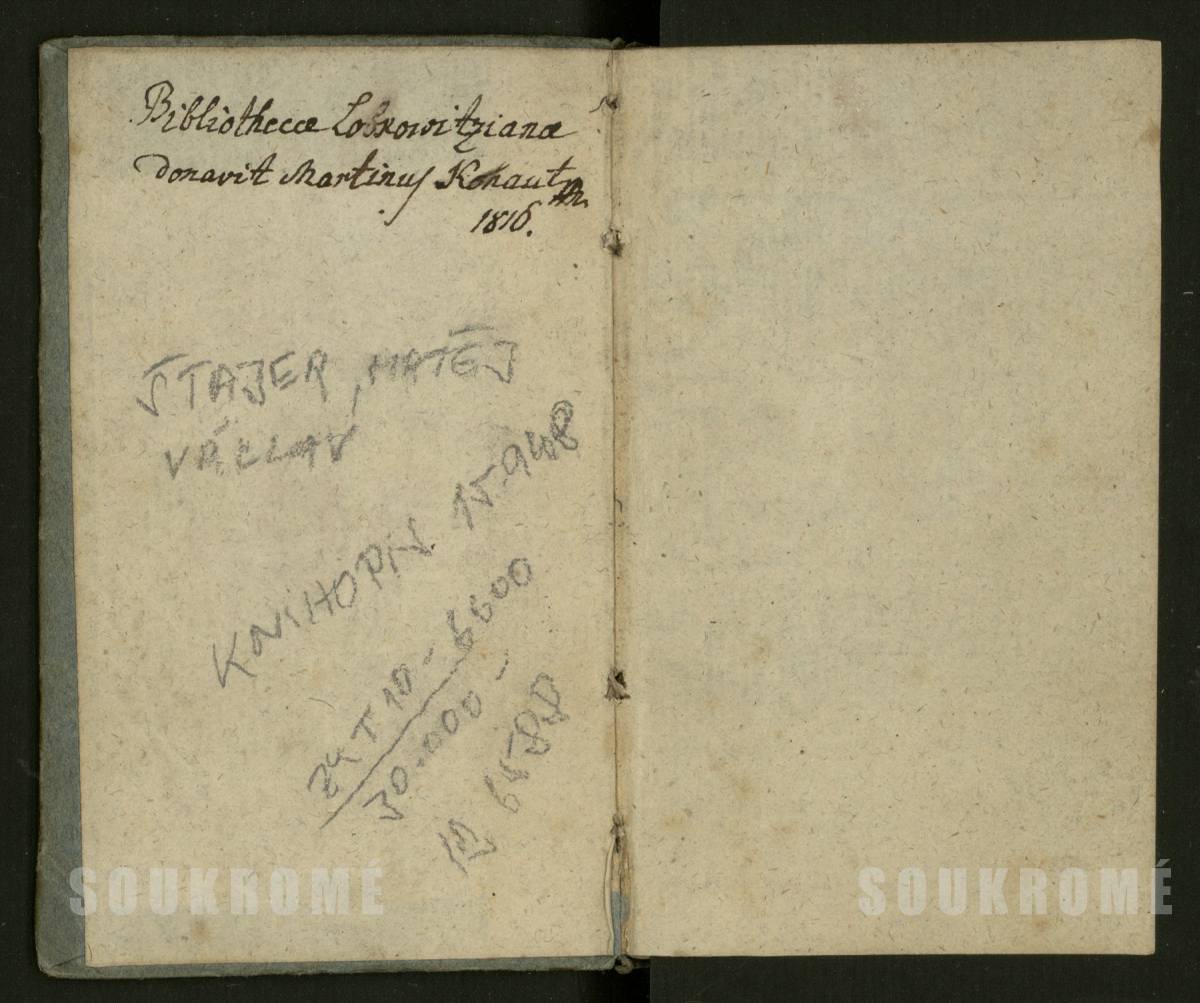 Bibliothecæ Lobkowitzianæ
donavit Martinus Kohaut
1816.
ŠTAJER, MATĚJ
VÁCLAV
KNIHOPIS 15.948
24 T 10 - 6600
30.000 -
6589
SOUKROMÉ SOUKROMÉ